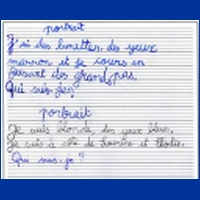 portrait
J'ai des lunettes, des yeux
marron et je cours en
faisant des grands pas.
Qui suis-je?
portrait
Je suis blonde, les yeux bleus.
Je suis à côté de et Elodie.
Qui suis-je?